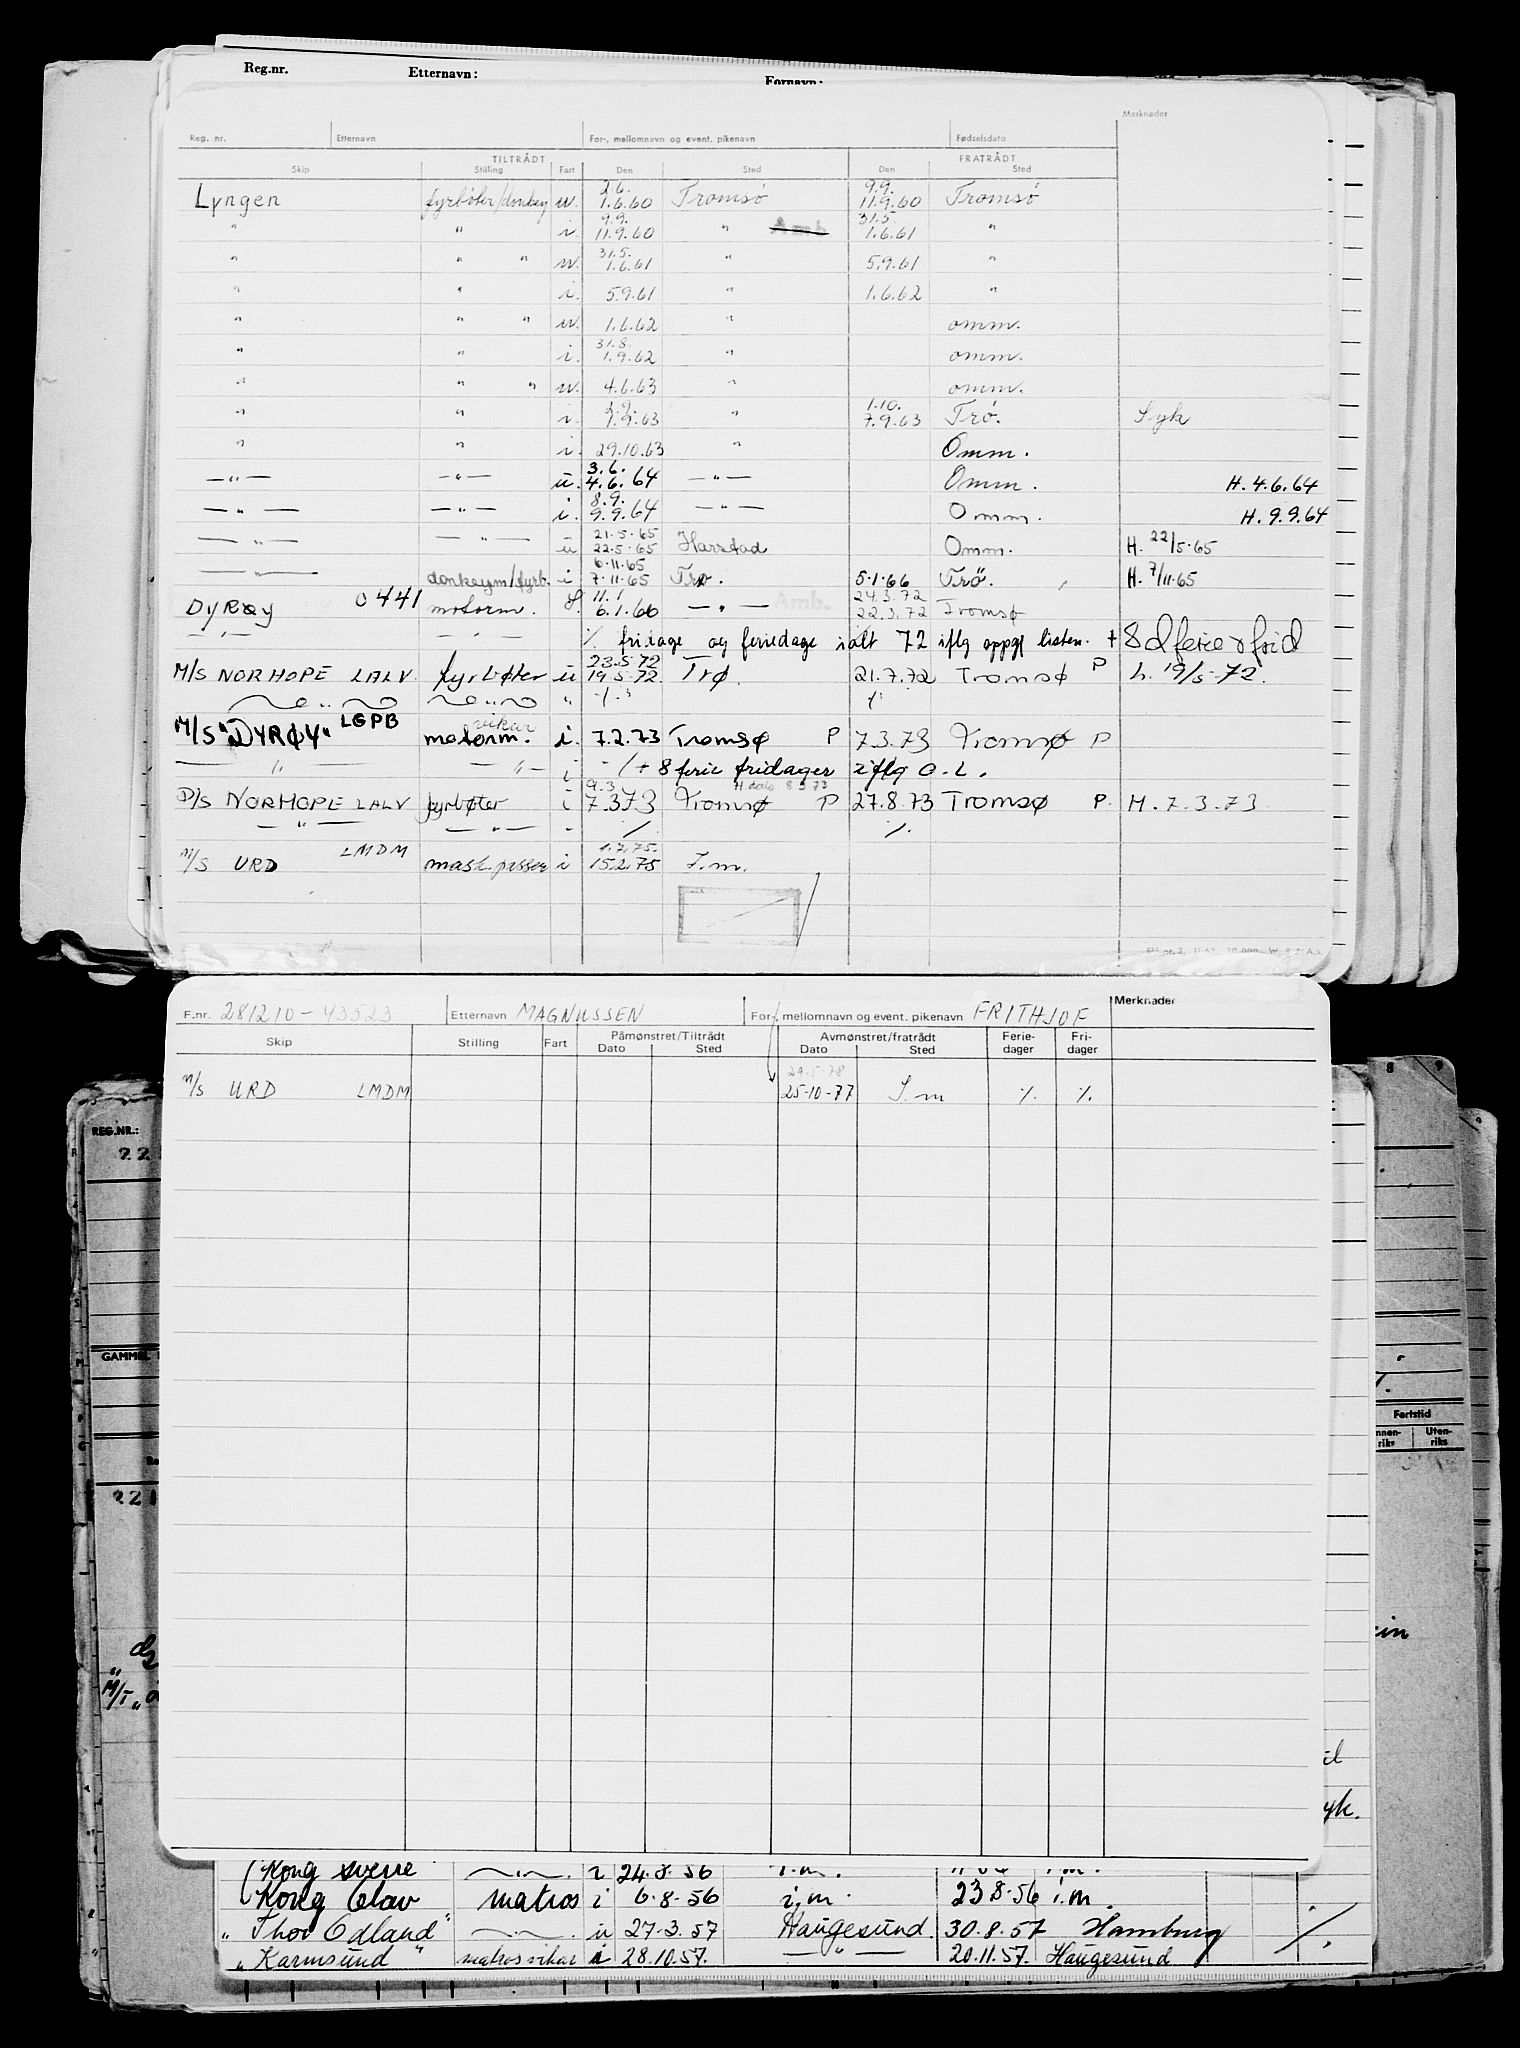 Reg.nr. Etternavn: Fornavn:
Merknader
Reg. nr. Etternavn For-, mellomnavn og event. pikenavn Fødselsdato
TILTRÅDT FRATRÅDT
Skip Stilling Fart Den Sted Den Sted
2.6. 9.9.
Lyngen fyrbøter/donkey u. 1.6.60 Tromsø 11.9.60 Tromsø
9.9. 31.5.
" " i. 11.9.60 " Amb. 1.6.61 "
31.5.
" " " u. 1.6.61 " 5.9.61 "
" " i. 5.9.61 " 1.6.62 "
" " " u. 1.6.62 " omm.
31.8.
" " i. 1.9.62 " omm.
" " " u. 4.6.63 " omm.
2.9. 1.10.
" " i. 1.9.63 " 7.9.63 Trø. Syk
" " i. 29.10.63 " Omm.
3.6.
—"— —"— u. 4.6.64 —"— Omm. H. 4.6.64
8.9.
—"— —"— i. 9.9.64 —"— Omm. H. 9.9.64
21.5.65
—"— —"— u 22.5.65 Harstad Omm. H. 22/5.65
6.11.65
—"— donkeym/fyrb. i 7.11.65 Trø. 5.1.66 Trö. H. 7/11.65
11.1 24.3.72
DYRØY 0441 motorm. 6.1.66 —"— Amb. 22.3.72 Tromsø
—"— —"— % fridage og feriedage ialt 72 iflg oppg listen. + 8 d ferie & frid
23.5.72
M/S NORHOPE LALV fyrbøter u 19.5.72 Trø. 21.7.72 Tromsø P L. 19/5-72.
" " " % %
vikar
M/S "DYRØY" LGPB motorm. i. 7.2.73 Tromsø P 7.3.73 Tromsø P
—"— —"— i - /+ 8 ferie fridager iflg O.L.
9.3
D/S NORHOPE LALV fyrbøter i 7.3.73 Tromsø P 27.8.73 Tromsø P. M. 7.3.73
—"— —"— - % %
1.2.75.
M/S URD LMDM mask.passer i 15.2.75 I.m.
F.nr. 281210-43523 Etternavn MAGNUSSEN For-, mellomnavn og event. pikenavn FRITHJOF Merknader
Skip Stilling Fart Påmønstret/Tiltrådt Avmønstret/fratrådt Ferie- Fri-
Dato Sted Dato Sted dager dager
29.5.78
M/S URD LMDM 25-10-77 I.m % %
8 9
REG.NR.:
22
GAMMEL
Fartstid
Innen- Uten-
riks riks
221
M/T "
yk.
Kong Sverre —"— i 24.8.56 i.m. i.m.
Kong Olav matros i 6.8.56 i.m. 23.8.56 i.m.
"Thor Odland" —"— u 27.3.57 Haugesund. 30.8.57 Hamburg %
"Karmsund" matros vikar i 28.10.57. —"— 20.11.57. Haugesund